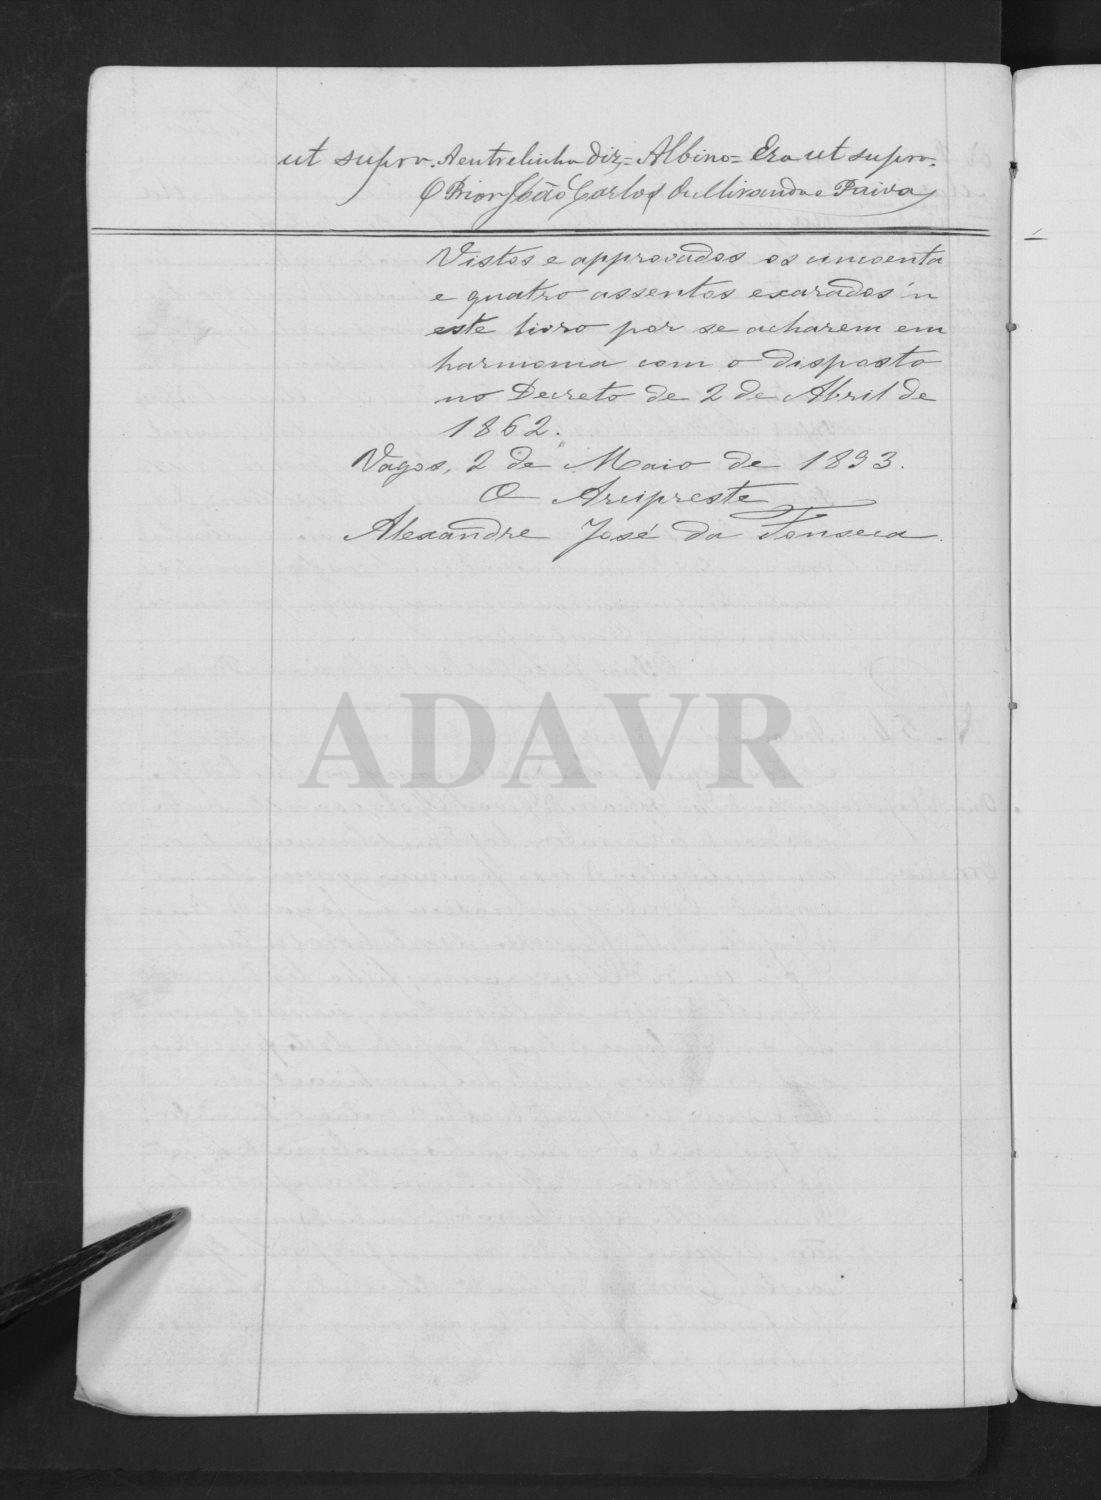 ut supra. A entrelinha diz = Albino = Era ut supra.
O Prior João Carlos de Miranda e Paiva
Vistos e approvados os cincoenta
e quatro assentos exarados n'
este livro por se acharem em
harmonia com o disposto
no Decreto de 2 de Abril de
1862.
Vagos, 2 de Maio de 1893.
O Arcipreste
Alexandre José da Fonseca.
ADAVR